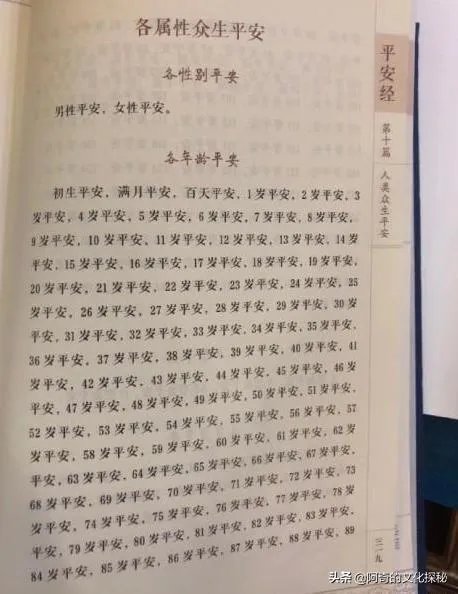 各属性众生平安
各性别平安
男性平安，女性平安。
各年龄平安
初生平安，满月平安，百天平安，1岁平安，2岁平安，3
岁平安，4岁平安，5岁平安，6岁平安，7岁平安，8岁平安，
9岁平安，10岁平安，11岁平安，12岁平安，13岁平安，14岁
平安，15岁平安，16岁平安，17岁平安，18岁平安，19岁平安，
20岁平安，21岁平安，22岁平安，23岁平安，24岁平安，25
岁平安，26岁平安，27岁平安，28岁平安，29岁平安，30岁
平安，31岁平安，32岁平安，33岁平安，34岁平安，35岁平安，
36岁平安，37岁平安，38岁平安，39岁平安，40岁平安，41
岁平安，42岁平安，43岁平安，44岁平安，45岁平安，46岁
平安，47岁平安，48岁平安，49岁平安，50岁平安，51岁平安，
52岁平安，53岁平安，54岁平安，55岁平安，56岁平安，57
岁平安，58岁平安，59岁平安，60岁平安，61岁平安，62岁
平安，63岁平安，64岁平安，65岁平安，66岁平安，67岁平安，
68岁平安，69岁平安，70岁平安，71岁平安，72岁平安，73
岁平安，74岁平安，75岁平安，76岁平安，77岁平安，78岁
平安，79岁平安，80岁平安，81岁平安，82岁平安，83岁平安，
84岁平安，85岁平安，86岁平安，87岁平安，88岁平安，89
平安经
第十篇 人类众生平安
三一九
头条 @阿奇的文化探秘